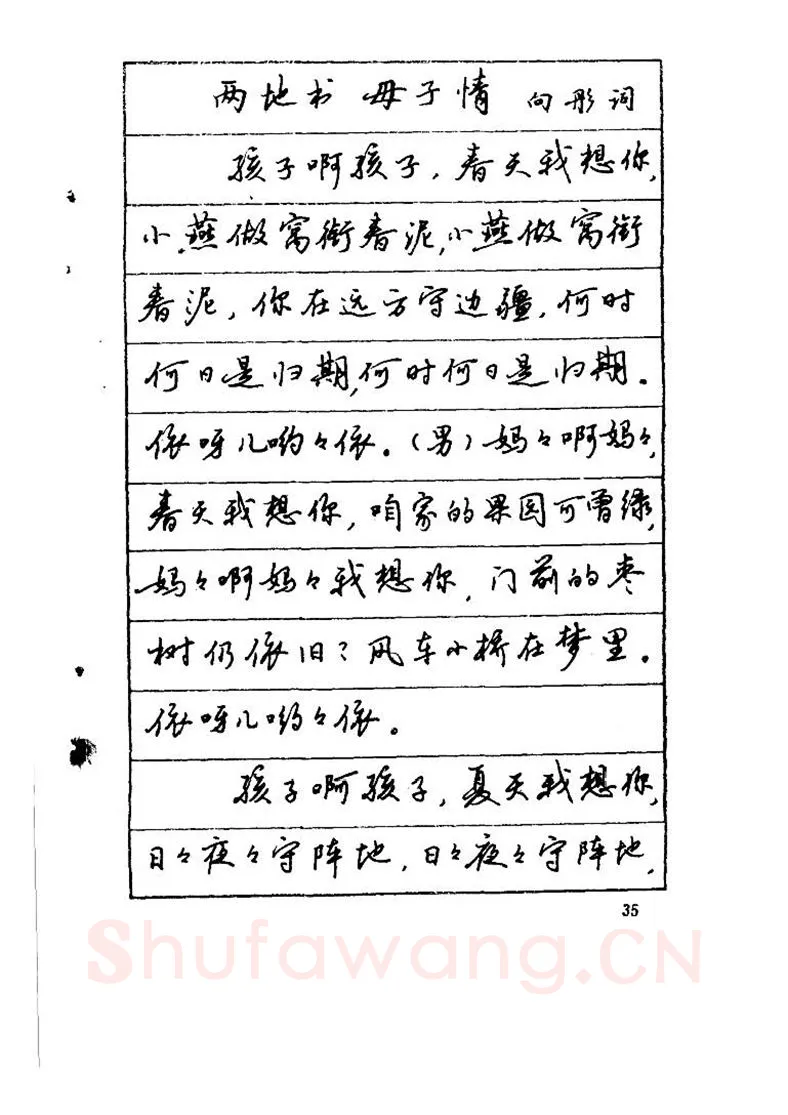 两地书 母子情 向彤词
孩子啊孩子，春天我想你，
小燕做窝衔春泥，小燕做窝衔
春泥，你在远方守边疆，何时
何日是归期，何时何日是归期。
依呀儿哟々依。（男）妈々啊妈々，
春天我想你，咱家的果园可曾绿，
妈々啊妈々我想你，门前的枣
树仍依旧？风车小桥在梦里。
依呀儿哟々依。
孩子啊孩子，夏天我想你，
日々夜々守阵地，日々夜々守阵地，
35
Shufawang.CN